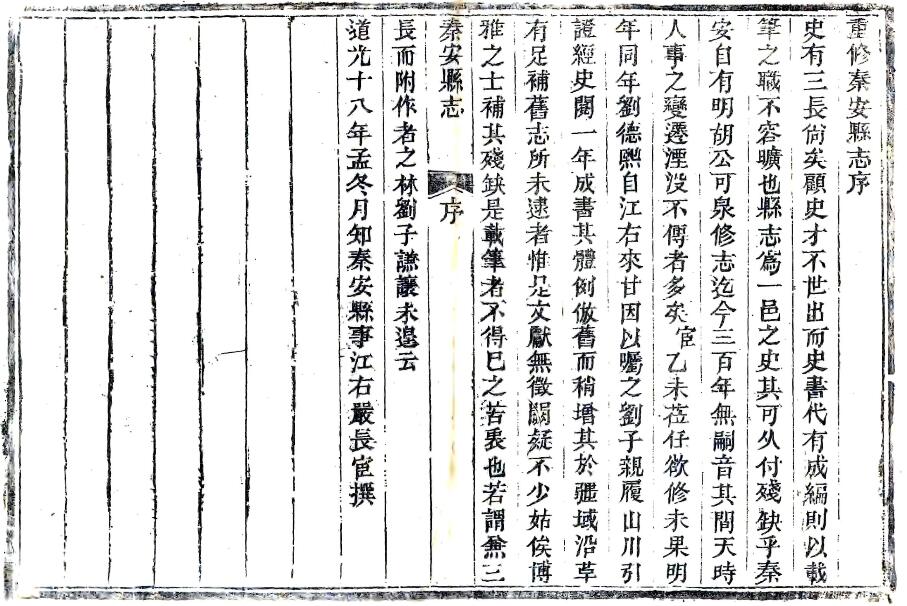 重修秦安縣志序
史有三長尙矣顧史才不世出而史書代有成編則以載
筆之職不容曠也縣志爲一邑之史其可久付殘缺乎秦
安自有明胡公可泉修志迄今三百年無嗣音其間天時
人事之變遷湮没不傳者多矣宦乙未莅任欲修未果明
年同年劉德熙自江右來甘因以囑之劉子親履山川引
證經史閱一年成書其體例倣舊而稍增其於疆域沿革
有足補舊志所未逮者惟是文獻無徵闕疑不少姑俟博
雅之士補其殘缺是載筆者不得已之苦衷也若謂兼三
秦安縣志 序
長而附作者之林劉子謙讓未遑云
道光十八年孟冬月知秦安縣事江右嚴長宦撰